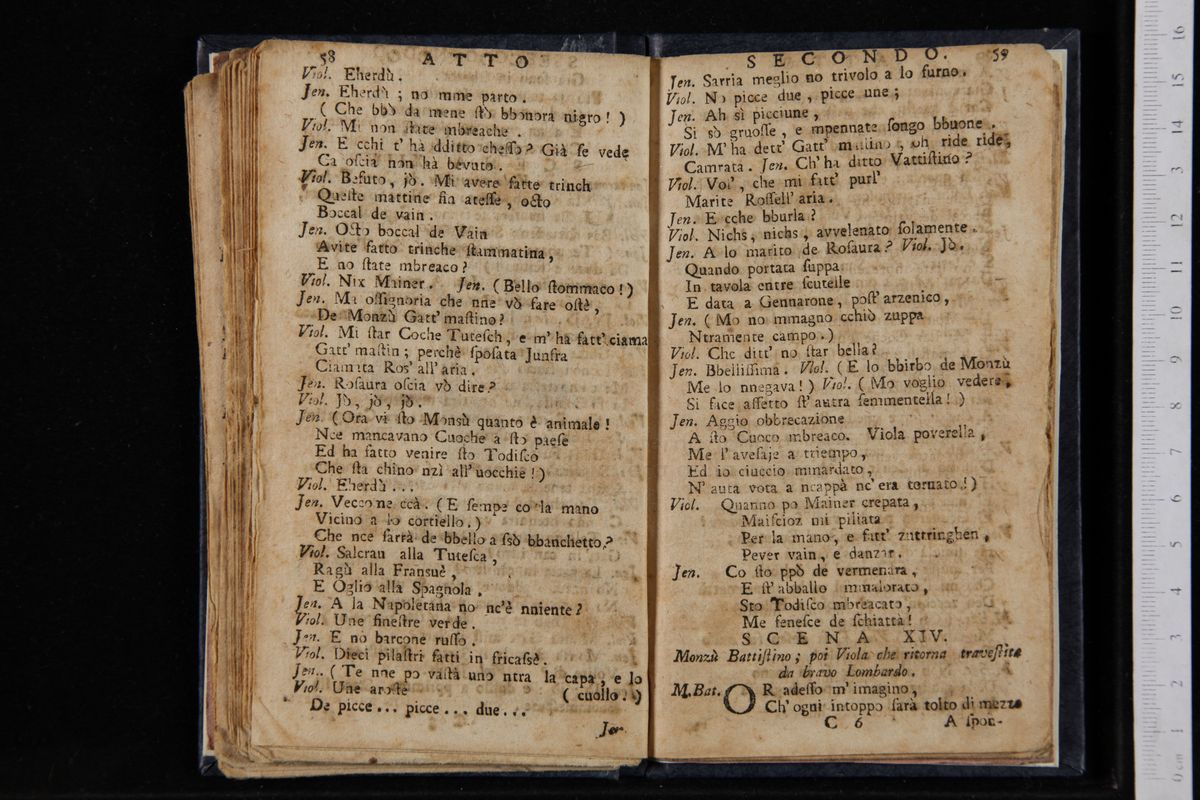 58 ATTO
Viol. Eherdù.
Jen. Eherdù; no mme parto.
( Che bbò da mene ſtò bbonora nigro! )
Viol. Mi non ſtate mbreache.
Jen. E cchi t' hà dditto cheſſo? Già ſe vede
Ca oſcia non hà bevuto.
Viol. Befuto, jò. Mi avere fatte trinch
Queſte mattine fin ateſſe, octo
Boccal de vain.
Jen. Octo boccal de Vain
Avite fatto trinche ſtammatina,
E no ſtate mbreaco?
Viol. Nix Mainer. Jen. (Bello ſtommaco!)
Jen. Ma oſſignoria che nne vò fare oſtè,
De Monzù Gatt' maſtino?
Viol. Mi ſtar Coche Tuteſch, e m' ha fatt' ciama
Gatt' maſtin; perchè ſpoſata Junfra
Ciamata Ros' all' aria.
Jen. Roſaura oſcia vò dire?
Viol. Jò, jò, jò.
Jen. (Ora vi ſto Monsù quanto è animale!
Nce mancavano Cuoche a ſto paeſe
Ed ha fatto venire ſto Todiſcò
Che ſta chino nzì all' uocchie!)
Viol. Eherdù...
Jen. Veccone ccà. (E ſempe co la mano
Vicino a lo cortiello.)
Che nce ſarrà de bbello a ſsò bbanchetto?
Viol. Salcrau alla Tuteſca,
Ragù alla Fransuè,
E Oglio alla Spagnola.
Jen. A la Napoletana no nc'è nniente?
Viol. Une fineſtre verde.
Jen. E no barcone ruſſo.
Viol. Dieci pilaſtri fatti in fricaſsè.
Jen.. (Te nne po vaſtà uno ntra la capa, e lo
Viol. Une aroſte ( cuollo.)
De picce... picce... due...
Jen.
SECONDO. 59
Jen. Sarria meglio no trivolo a lo furno.
Viol. No picce due, picce une;
Jen. Ah sì picciune,
Si sò gruoſſe, e mpennate ſongo bbuone.
Viol. M' ha dett' Gatt' maſtino, oh ride ride,
Camrata. Jen. Ch' ha ditto Vattiſtino?
Viol. Voi', che mi fatt' purl'
Marite Roſſell' aria.
Jen. E cche bburla?
Viol. Nichs, nichs, avvelenato ſolamente.
Jen. A lo marito de Roſaura? Viol. Jò.
Quando portata ſuppa
In tavola entre ſcutelle
E data a Gennarone, poſt' arzenico,
Jen. (Mo no mmagno cchiò zuppa
Ntramente campo.)
Viol. Che ditt' no ſtar bella?
Jen. Bbelliſſima. Viol. (E lo bbirbo de Monzù
Me lo nnegava!) Viol. (Mo voglio vedere,
Si face aſſetto ſt' autra femmentella!)
Jen. Aggio obbrecazione
A ſto Cuoco mbreaco. Viola poverella,
Me l' aveſaje a ttiempo,
Ed io ciuccio mmardato,
N' auta vota a ncappà nc' era tornato!)
Viol. Quanno po Mainer crepata,
Maiſcioz mi piliata
Per la mano, e fatt' zuttringhen,
Pever vain, e danzar.
Jen. Co ſto ppò de vermenara,
E ſt' abballo mmalorato,
Sto Todiſco mbreacato,
Me feneſce de ſchiattà!
SCENA XIV.
Monzù Battiſtino; poi Viola che ritorna traveſtita
da bravo Lombardo.
M.Bat. OR adeſſo m' imagino,
Ch' ogni intoppo ſarà tolto di mezzo
C 6 A ſpon-